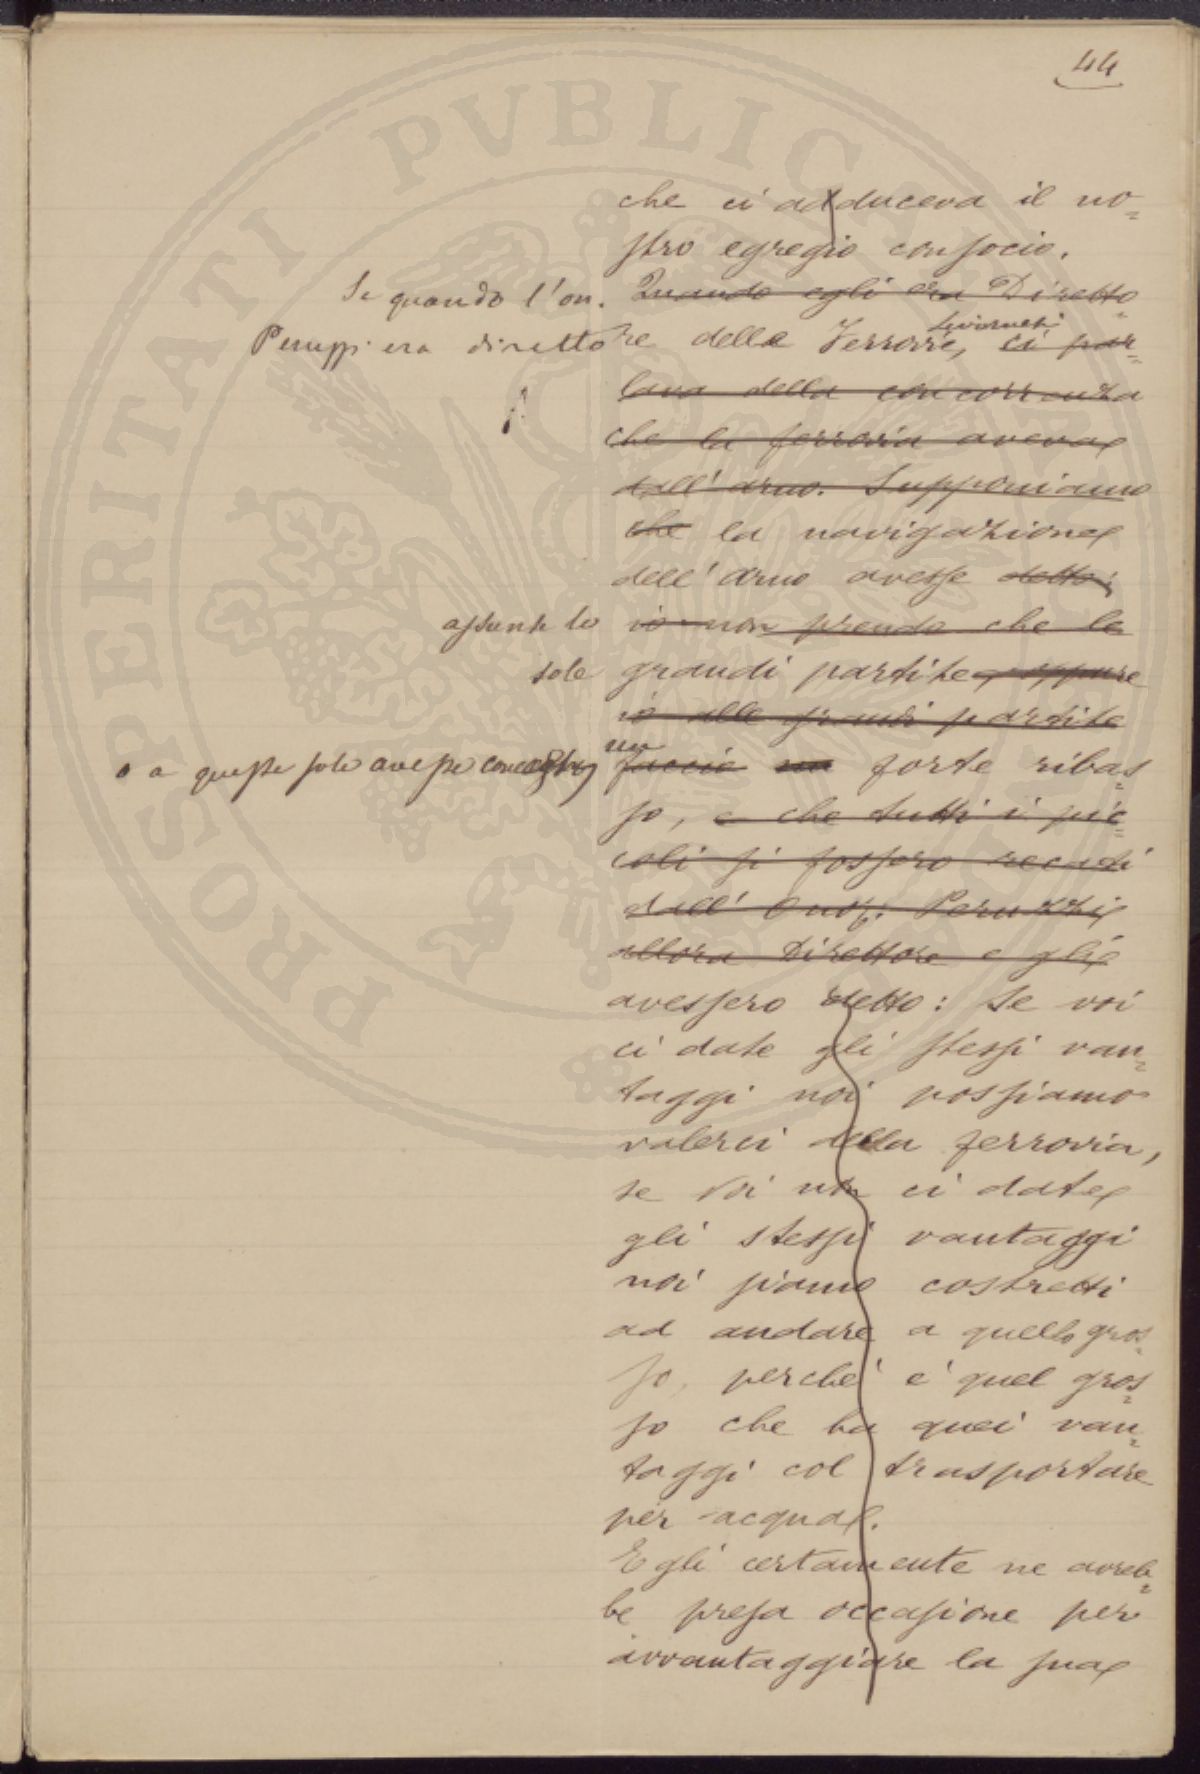 44
che ci adduceva il no=
stro egregio consocio.
Se quando l'on. Quando egli era Diretto=
Peruzzi era diretto re delle Ferrovie, Livornesi, ci par=
lava della concorrenza
che la ferrovia aveva
dall'arno. Supponiamo
che la navigazione
dell'arno avesse detto:
assunte le io non prendo che le
sole grandi partite, oppure
io alle grandi partite
o a queste sole avesse un faccio un forte ribas=
so, e che tutti i pic=
coli si fossero recati
dall'Onor. Peruzzi
allora Direttore e gli
avessero detto: Se voi
ci date gli stessi van=
taggi noi possiamo
valerci della ferrovia,
se voi non ci date
gli stessi vantaggi
noi siamo costretti
ad andare a quello gros=
so, perché é quel gros=
so che ha quei van=
taggi col trasportare
per acqua.
Egli certamente ne avreb=
be presa occasione per
avvantaggiare la sua
PROSPERITATI PVBLICAE